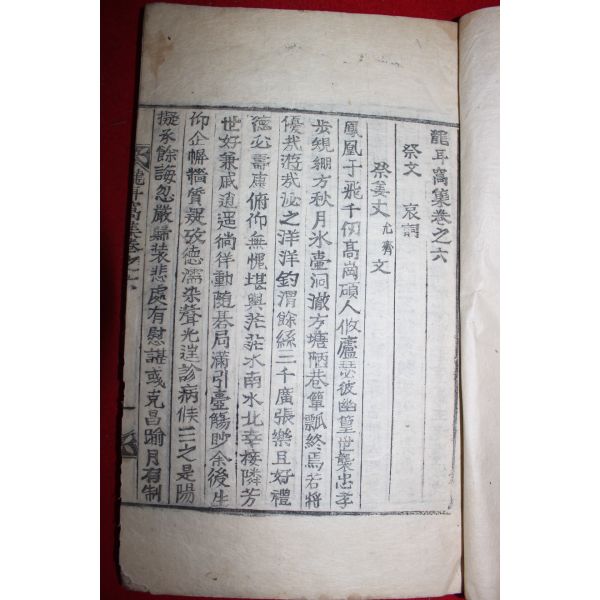 龍耳窩集卷之六
祭文 哀詞
祭姜丈元齊文
鳳凰于飛千仞高崗碩人攸廬瑟彼幽篁世襲忠孝
步規繩方秋月水壺洞澈方塘陋巷簞瓢終焉若將
優哉游哉泌之洋洋釣渭餘絲三千廣張樂且好禮
德必壽康俯仰無愧堪輿茫茫水南水北幸接隣芳
世好兼戚逍遥徜徉動随碁局滿引壺觴眇余後生
仰企幈幪質疑攷德濡染聲光遑診病候三之是陽
擬承餘誨忽嚴歸装悲處有慰諶或克昌踰月有制
龍耳窩集卷之六 一